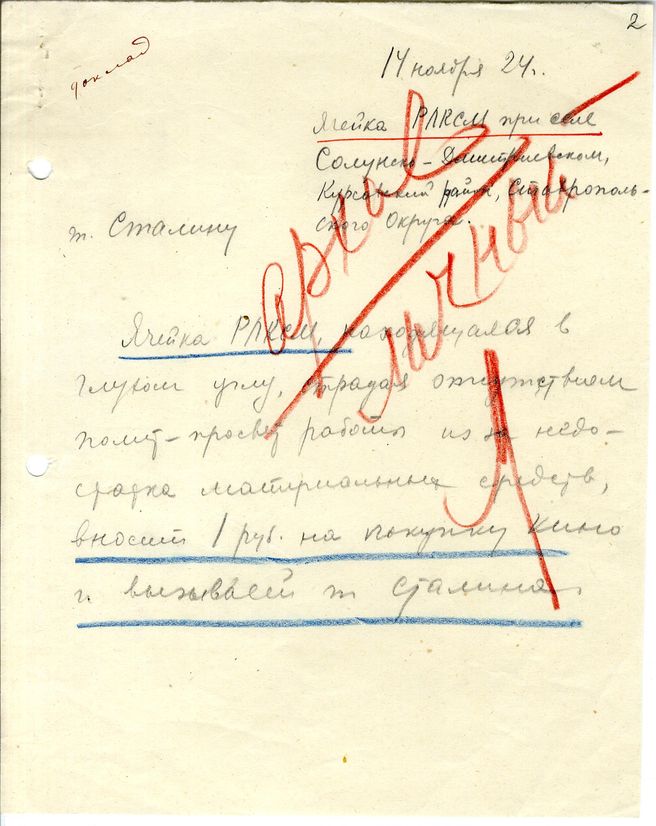 2
доклад
14 ноября 24 г.
Ячейка РЛКСМ при селе
Солунско-Дмитриевском,
Курсавский район, Ставрополь-
ского Округа.
т. Сталину
архив
личный
Ячейка РЛКСМ, находящаяся в
глухом углу, страдая отсутствием
полит-просвет работы из за недо-
статка материальных средств,
вносит 1 руб. на покупку Кино
и вызывает т Сталина.